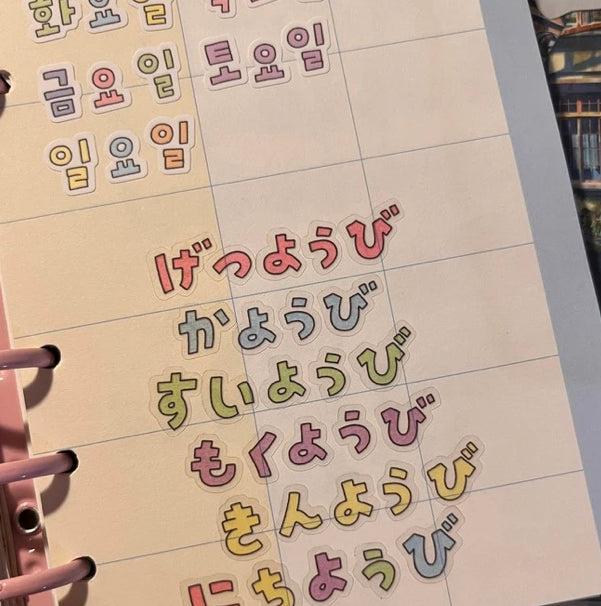 화요일
금요일 토요일
일요일
げつようび
かようび
すいようび
もくようび
きんようび
にちようび